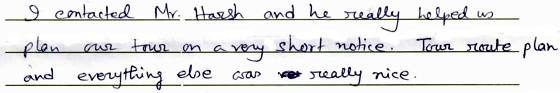 I contacted Mr. Harsh and he really helped us
plan our tour on a very short notice. Tour route plan
and everything else was really nice.